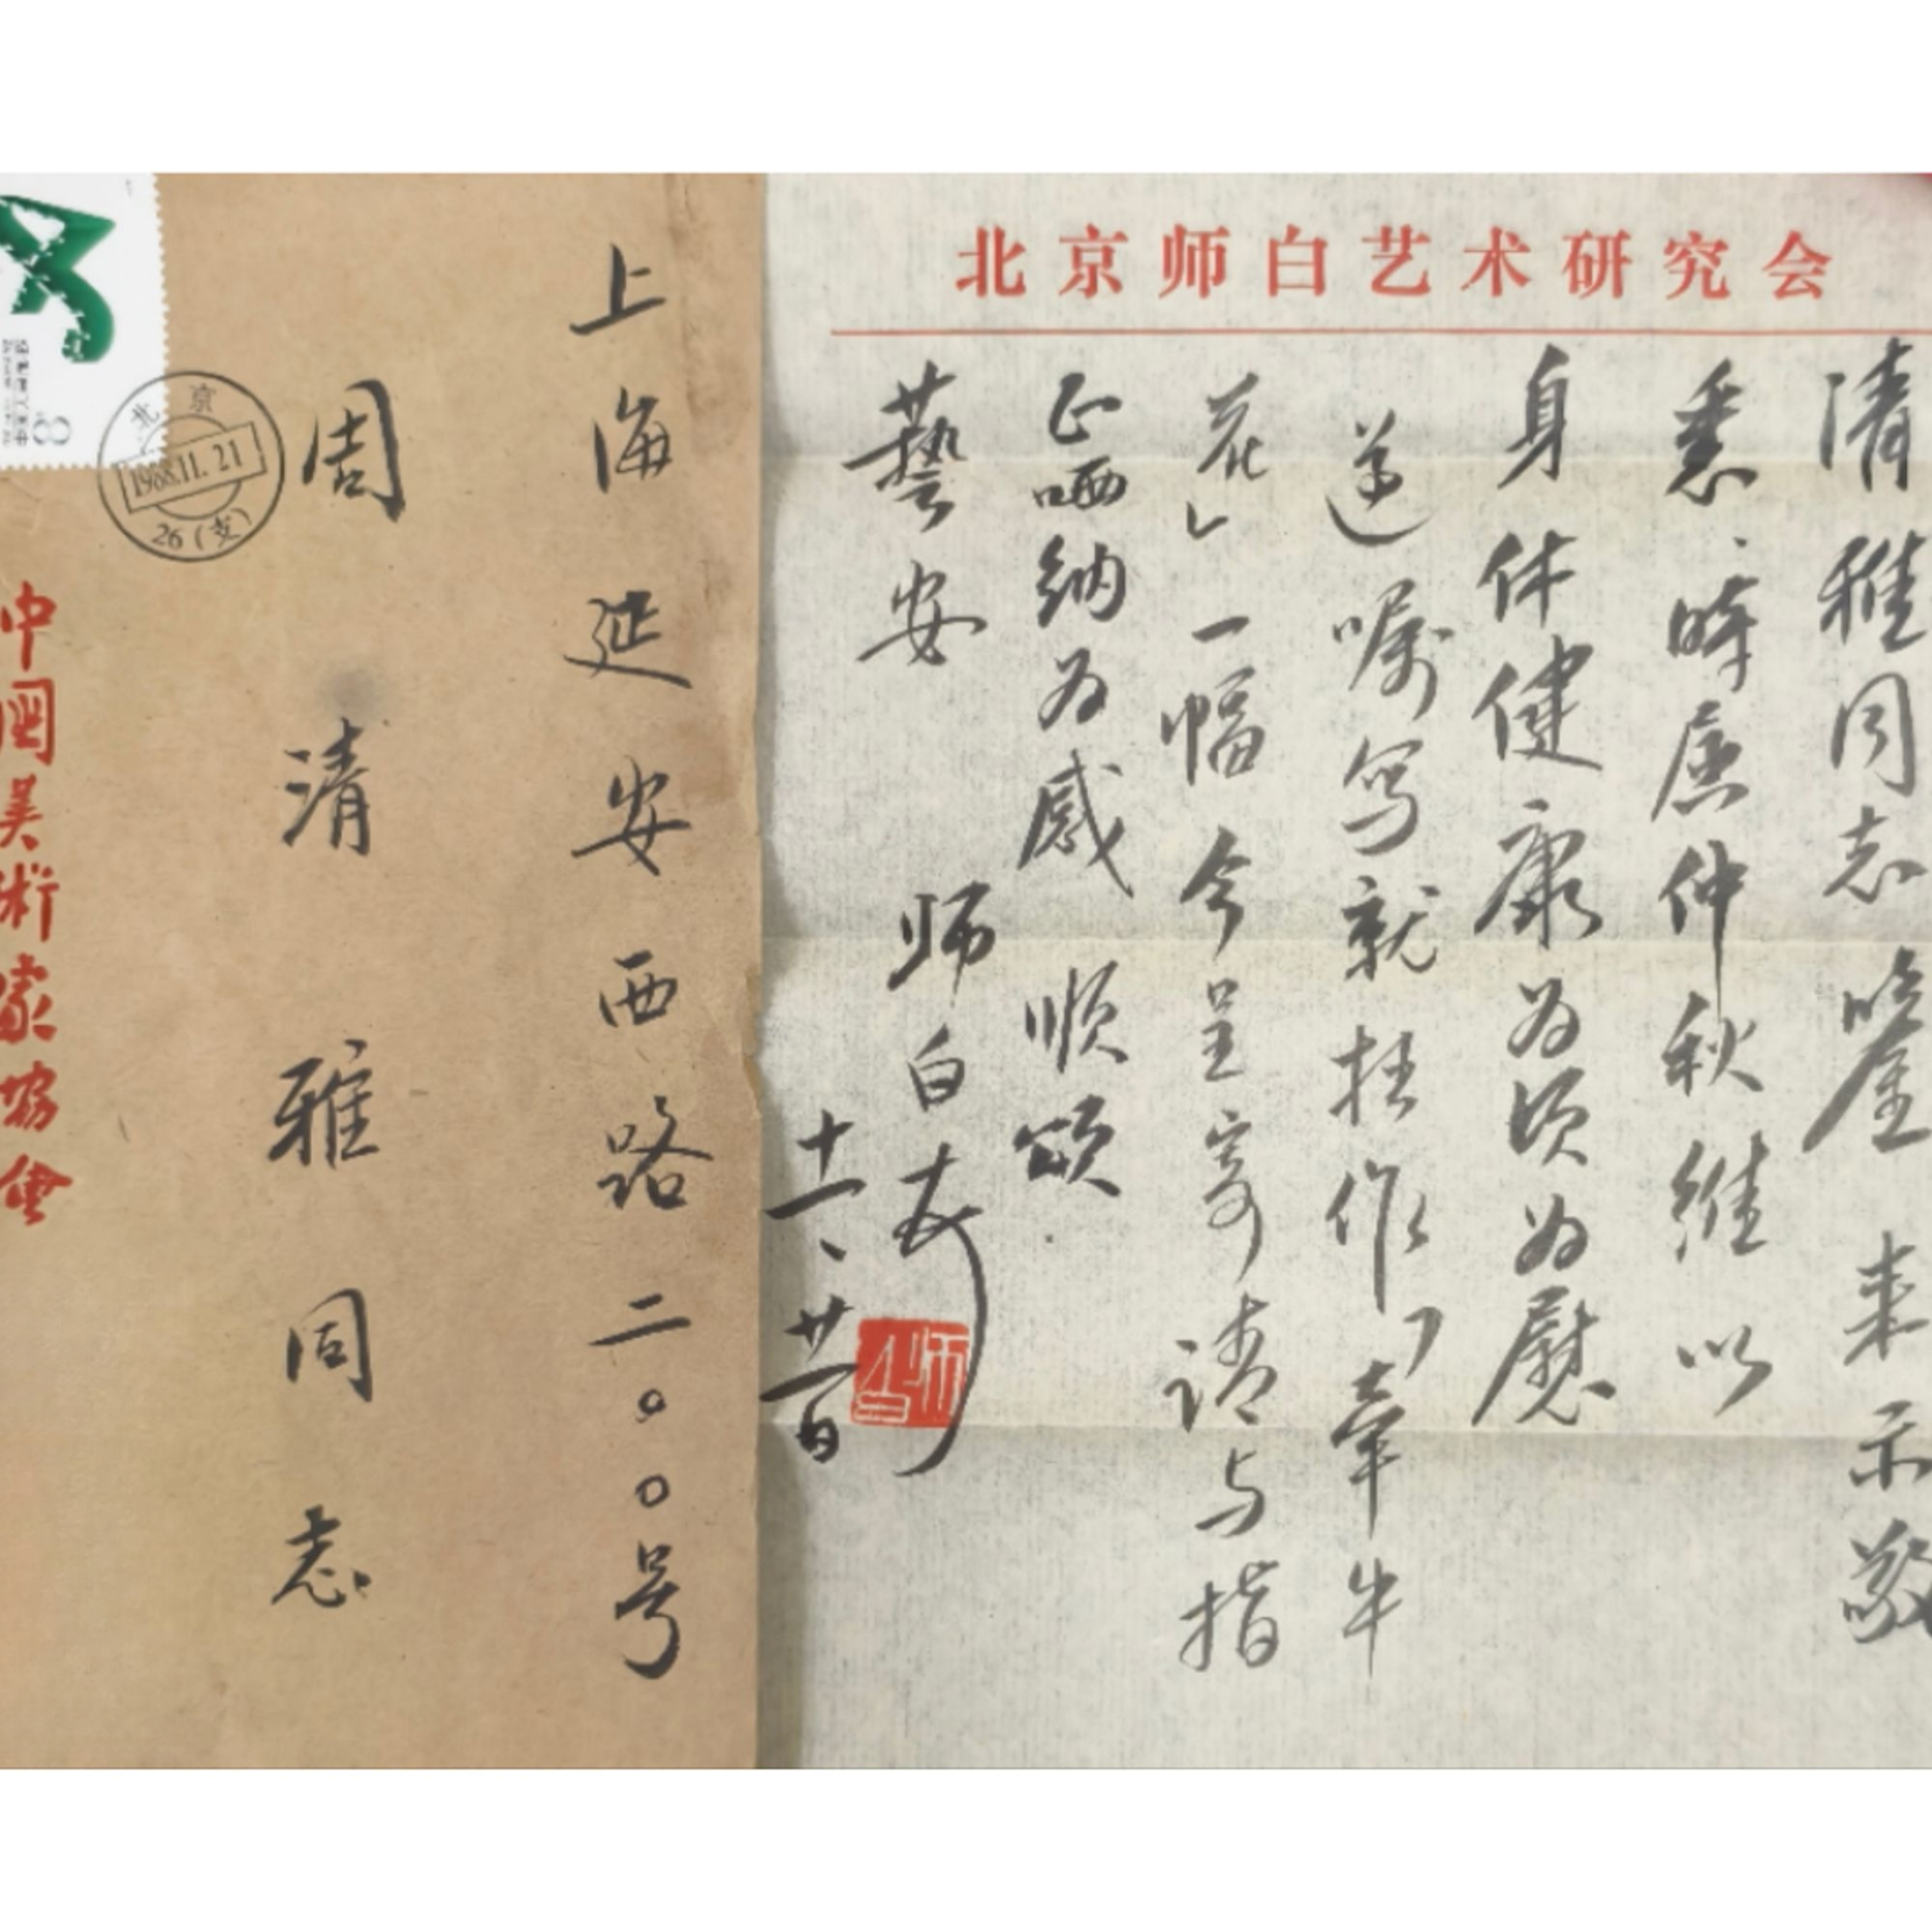 北京师白艺术研究会
清雅同志鉴来示敬
悉.时届仲秋维以
身体健康为颂为慰
遵嘱写就拙作「牵牛
花」一幅今呈寄请与指
正哂纳为感 顺颂.
藝安
师白
十一、廿一日
师白
上海延安西路二〇〇号
周清雅同志
北京
1988.11.21
26(支)
中國美術家协會
8